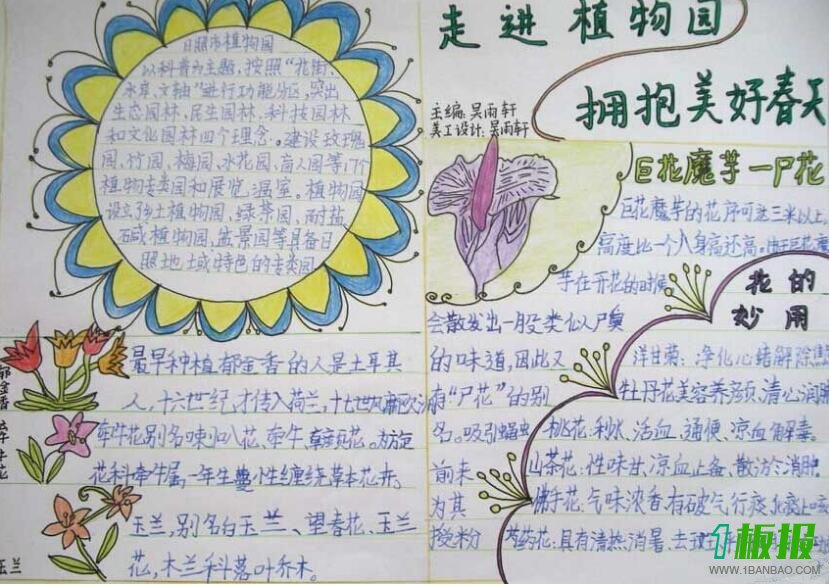 走进植物园
拥抱美好春天
主编:吴雨轩
美工设计:吴雨轩
日照市植物园
以科普为主题,按照“花街、
水草、文轴”进行功能分区,突出
生态园林、民生园林、科技园林
和文化园林四个理念。建设玫瑰
园、竹园、梅园、水花园、盲人园等17个
植物专类园和展览温室。植物园
设立乡土植物园、绿篱园、耐盐
碱植物园、盆景园等具备日
照地域特色的专类园
巨花魔芋一尸花
巨花魔芋的花序可达三米以上,
高度比一个人身高还高。
芋在开花的时候
会散发出一股类似人尸臭
的味道,因此又
有“尸花”的别
名。吸引蝇虫
前来
为其
授粉
花的
妙用
洋甘菊:净化心绪解除焦
牡丹花美容养颜、清心润肺
桃花:利水、活血、通便、凉血解毒
山茶花:性味甘、凉血止备、散淤消肿
佛手花:气味浓香有破气行痰
芍药花:具有清热、消暑、去
郁金香
最早种植郁金香的人是土耳其
人,十六世纪才传入荷兰,十七世
牵牛花
牵牛花别名喇叭花、牵牛、
花科牵牛属,一年生蔓性缠绕草本花卉。
玉兰
玉兰,别名白玉兰、望春花、玉兰
花,木兰科落叶乔木。
1板报
WWW.1BANBAO.COM